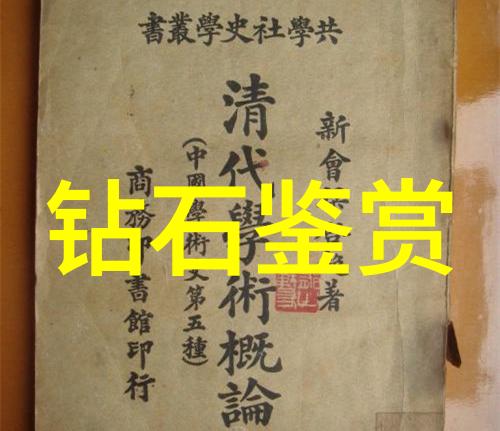 共學社史學叢書
新會 著
清代學術概論
(中國學術史第五種)
商務印書館印行
钻石鉴赏